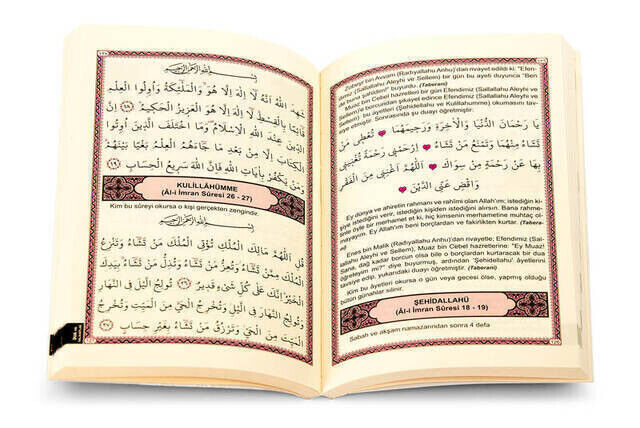 Zübeyr bin Avvam (Radıyallahu Anhu)'dan rivayet edildi ki: "Efen-
dimiz (Sallallahu Aleyhi ve Sellem) bir gün bu ayeti duyunca "Ben
de buna şahidim!" buyurdu. (Taberani)
Muaz bin Cebel hazretleri bir gün Efendimiz (Sallallahu Aleyhi ve
Sellem)'e borcundan şikayet edince Efendimiz (Sallallahu Aleyhi ve
Sellem), bu ayetleri (Şehidellahu ve Kulillahumme) okumasını tav-
siye etmiştir. Sonrasında şu duayı öğretmiştir:
يَا رَحْمَانَ الدُّنْيَا وَالْآخِرَةِ وَرَحِيمَهُمَا تُعْطِي مَنْ
تَشَاءُ مِنْهُمَا وَتَمْنَعُ مَنْ تَشَاءُ اِرْحَمْنِي رَحْمَةً تُغْنِينِي
بِهَا عَنْ رَحْمَةِ مِنْ سِوَاكَ اَللَّهُمَّ اَغْنِنِي مِنَ الْفَقْرِ
وَاقْضِ عَنِّي الدَّيْنَ
Ey dünya ve ahiretin rahmanı ve rahîmi olan Allah'ım; istediğine
kişiye istediğini verir, istediğin kişiden istediğini alırsın. Bana rahme-
tinle öyle bir merhamet et ki, hiç kimsenin merhametine muhtaç ol-
mayayım. Ey Allah'ım beni borçlardan ve fakirlikten kurtar. (Taberani)
Enes bin Malik (Radıyallahu Anhu)'dan rivayetle; Efendimiz (Sal-
lallahu Aleyhi ve Sellem), Muaz bin Cebel hazretlerine: "Ey Muaz!
Sana, dağ kadar borcun olsa bile o borçlardan kurtaracak bir dua
öğreteyim mi?" diye buyurmuş, ardından 'Şehidellahu' âyetlerini
tavsiye edip, yukarıdaki duayı öğretmiştir. (Taberani)
Kim bu âyetleri okursa o gün veya gecesi ölse, yapmış olduğu
bütün günahlar silinir.
ŞEHİDALLAHÜ
(Âl-i İmran Sûresi 18 - 19)
Sabah ve akşam namazlarından sonra 4 defa
بِسْمِ اللهِ الرَّحْمٰنِ الرَّحِيمِ
شَهِدَ اللهُ اَنَّهُ لَا اِلٰهَ اِلَّا هُوَ وَالْمَلٰئِكَةُ وَاُولُوا الْعِلْمِ
قَائِمًا بِالْقِسْطِ لَا اِلٰهَ اِلَّا هُوَ الْعَزِيزُ الْحَكِيمُ ﴿١٨﴾ اِنَّ
الدِّينَ عِنْدَ اللهِ الْاِسْلَامُ وَمَا اخْتَلَفَ الَّذِينَ اُوتُوا
الْكِتَابَ اِلَّا مِنْ بَعْدِ مَا جَاءَهُمُ الْعِلْمُ بَغْيًا بَيْنَهُمْ
وَمَنْ يَكْفُرْ بِاٰيَاتِ اللهِ فَاِنَّ اللهَ سَرِيعُ الْحِسَابِ ﴿١٩﴾
KULİLLÂHÜMME
(Âl-i İmran Sûresi 26 - 27)
Kim bu sûreyi okursa o kişi gerçekten zengindir.
بِسْمِ اللهِ الرَّحْمٰنِ الرَّحِيمِ
قُلِ اللّٰهُمَّ مَالِكَ الْمُلْكِ تُؤْتِي الْمُلْكَ مَنْ تَشَاءُ وَتَنْزِعُ
الْمُلْكَ مِمَّنْ تَشَاءُ وَتُعِزُّ مَنْ تَشَاءُ وَتُذِلُّ مَنْ تَشَاءُ بِيَدِكَ
الْخَيْرُ اِنَّكَ عَلٰى كُلِّ شَيْءٍ قَدِيرٌ ﴿٢٦﴾ تُولِجُ الَّيْلَ فِي النَّهَارِ
وَتُولِجُ النَّهَارَ فِي الَّيْلِ وَتُخْرِجُ الْحَيَّ مِنَ الْمَيِّتِ وَتُخْرِجُ
الْمَيِّتَ مِنَ الْحَيِّ وَتَرْزُقُ مَنْ تَشَاءُ بِغَيْرِ حِسَابٍ ﴿٢٧﴾